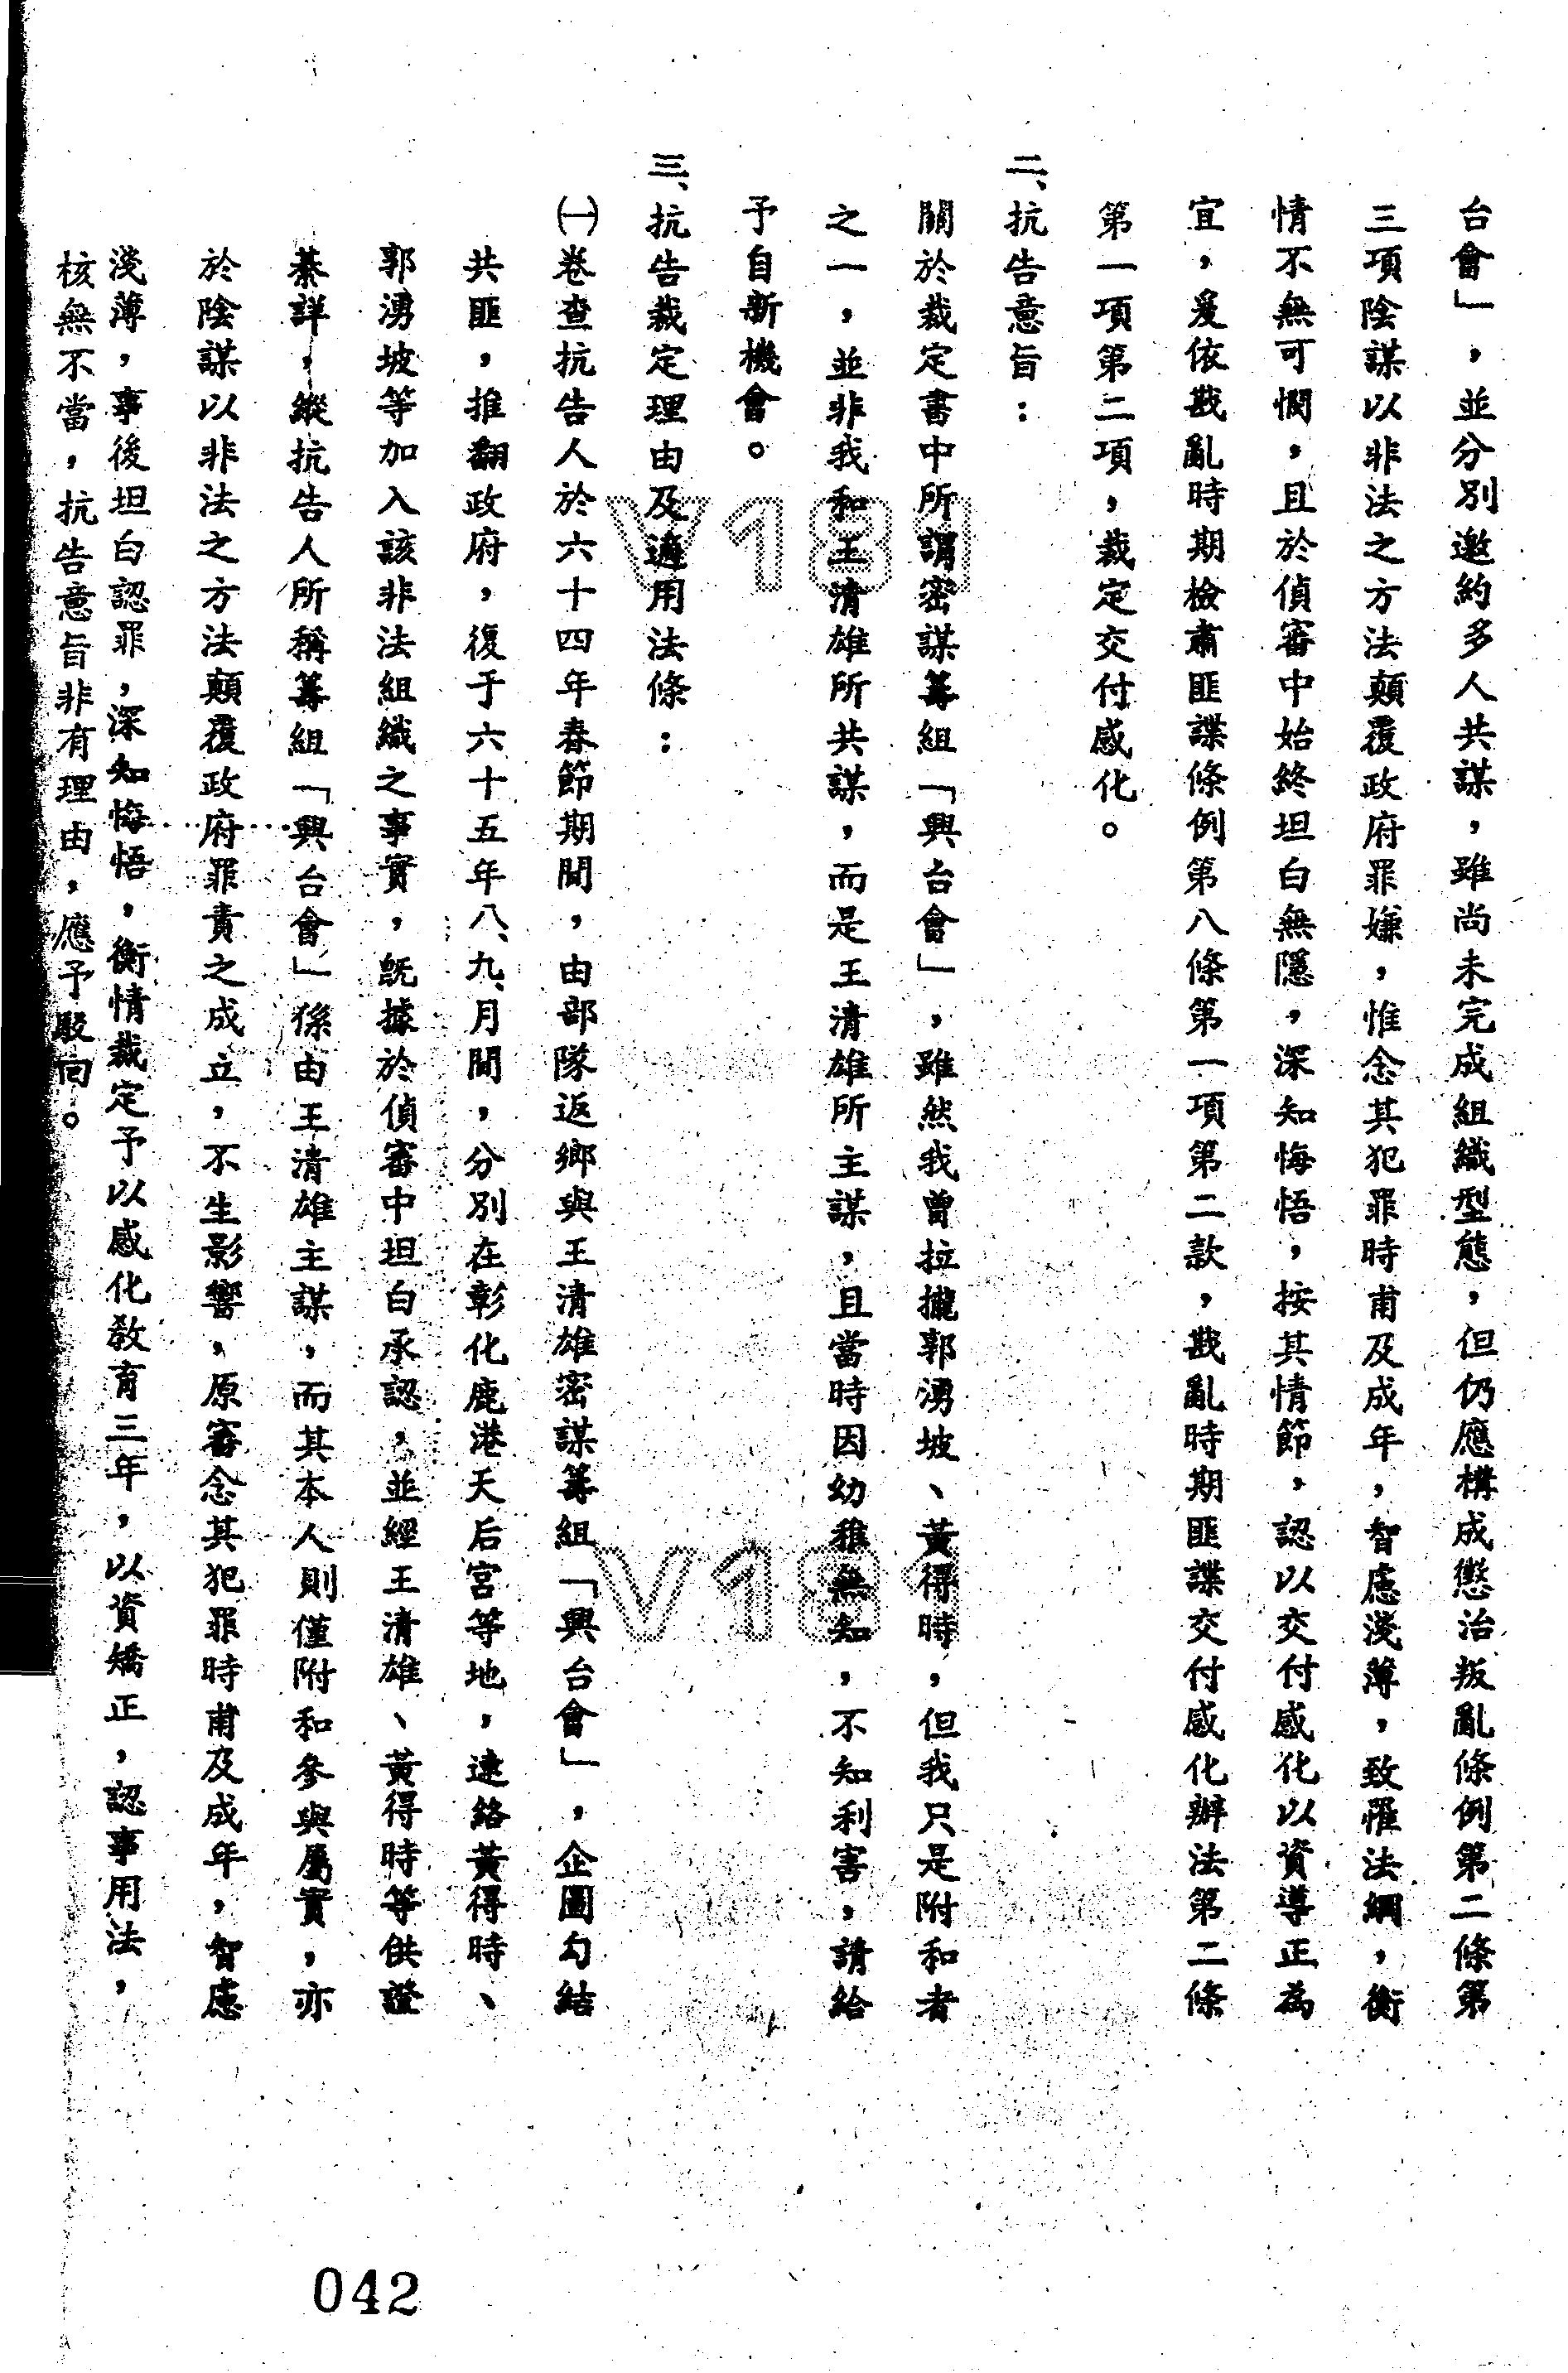 台會」，並分別邀約多人共謀，雖尚未完成組織型態，但仍應構成懲治叛亂條例第二條第
三項陰謀以非法之方法顛覆政府罪嫌，惟念其犯罪時甫及成年，智慮淺薄，致罹法網，衡
情不無可憫，且於偵審中始終坦白無隱，深知悔悟，按其情節，認以交付感化以資導正為
宜，爰依戡亂時期檢肅匪諜條例第八條第一項第二款，戡亂時期匪諜交付感化辦法第二條
第一項第二項，裁定交付感化。
二、抗告意旨：
關於裁定書中所謂密謀籌組「興台會」，雖然我曾拉攏郭湧坡、黃得時，但我只是附和者
之一，並非我和王清雄所共謀，而是王清雄所主謀，且當時因幼稚無知，不知利害，請給
予自新機會。
三、抗告裁定理由及適用法條：
㈠卷查抗告人於六十四年春節期間，由部隊返鄉與王清雄密謀籌組「興台會」，企圖勾結
共匪，推翻政府，復于六十五年八、九月間，分別在彰化鹿港天后宮等地，連絡黃得時、
郭湧坡等加入該非法組織之事實，既據於偵審中坦白承認，並經王清雄、黃得時等供證
綦詳，縱抗告人所稱籌組「興台會」係由王清雄主謀，而其本人則僅附和參與屬實，亦
於陰謀以非法之方法顛覆政府罪責之成立，不生影響，原審念其犯罪時甫及成年，智慮
淺薄，事後坦白認罪，深知悔悟，衡情裁定予以感化教育三年，以資矯正，認事用法，
核無不當，抗告意旨非有理由，應予駁回。
V181
V181
042